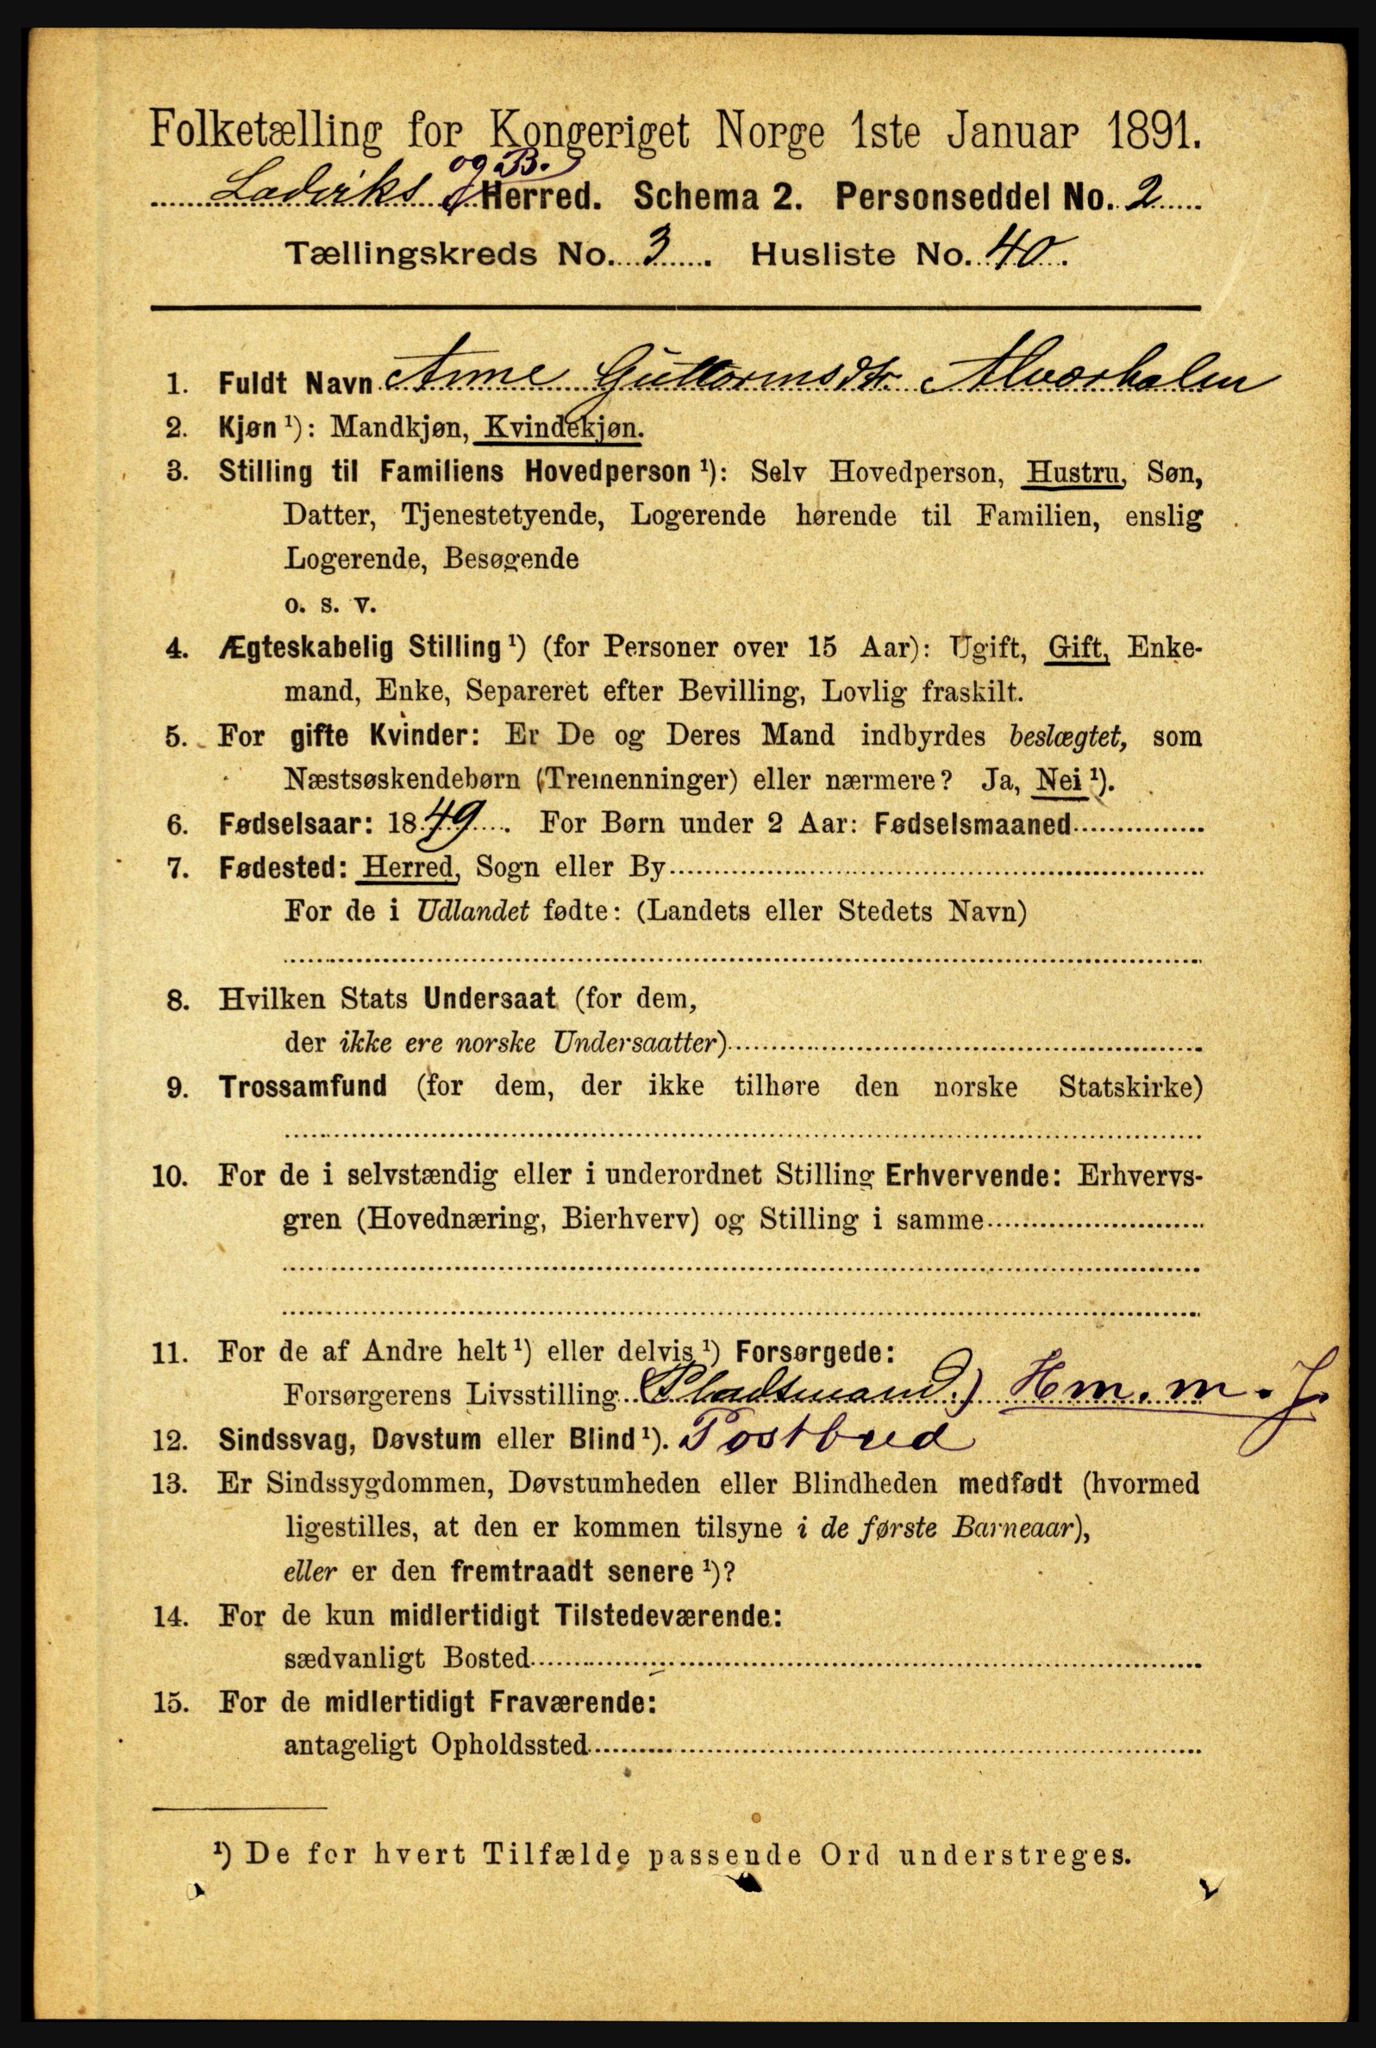 Folketælling for Kongeriget Norge 1ste Januar 1891.
og B.
Ladviks Herred. Schema 2. Personseddel No. 2
Tællingskreds No. 3. Husliste No. 40.
1. Fuldt Navn Anne Guttormsdtr. Alværhalen
2. Kjøn ¹): Mandkjøn, Kvindekjøn.
3. Stilling til Familiens Hovedperson ¹): Selv Hovedperson, Hustru, Søn,
Datter, Tjenestetyende, Logerende hørende til Familien, enslig
Logerende, Besøgende
o. s. v.
4. Ægteskabelig Stilling ¹) (for Personer over 15 Aar): Ugift, Gift, Enke-
mand, Enke, Separeret efter Bevilling, Lovlig fraskilt.
5. For gifte Kvinder: Er De og Deres Mand indbyrdes beslægtet, som
Næstsøskendebørn (Tremenninger) eller nærmere? Ja, Nei ¹).
6. Fødselsaar: 1849. For Børn under 2 Aar: Fødselsmaaned
7. Fødested: Herred, Sogn eller By
For de i Udlandet fødte: (Landets eller Stedets Navn)
8. Hvilken Stats Undersaat (for dem,
der ikke ere norske Undersaatter)
9. Trossamfund (for dem, der ikke tilhøre den norske Statskirke)
10. For de i selvstændig eller i underordnet Stilling Erhvervende: Erhvervs-
gren (Hovednæring, Bierhverv) og Stilling i samme
11. For de af Andre helt ¹) eller delvis ¹) Forsørgede:
Forsørgerens Livsstilling (Pladsmand.) Hm. m. J.
12. Sindssvag, Døvstum eller Blind ¹). Postbud
13. Er Sindssygdommen, Døvstumheden eller Blindheden medfødt (hvormed
ligestilles, at den er kommen tilsyne i de første Barneaar),
eller er den fremtraadt senere ¹)?
14. For de kun midlertidigt Tilstedeværende:
sædvanligt Bosted
15. For de midlertidigt Fraværende:
antageligt Opholdssted
¹) De for hvert Tilfælde passende Ord understreges.